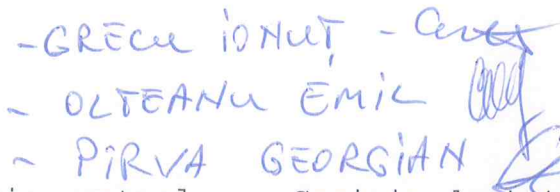 - GRECU IONUȚ -
- OLTEANU EMIL
- PÎRVA GEORGIAN